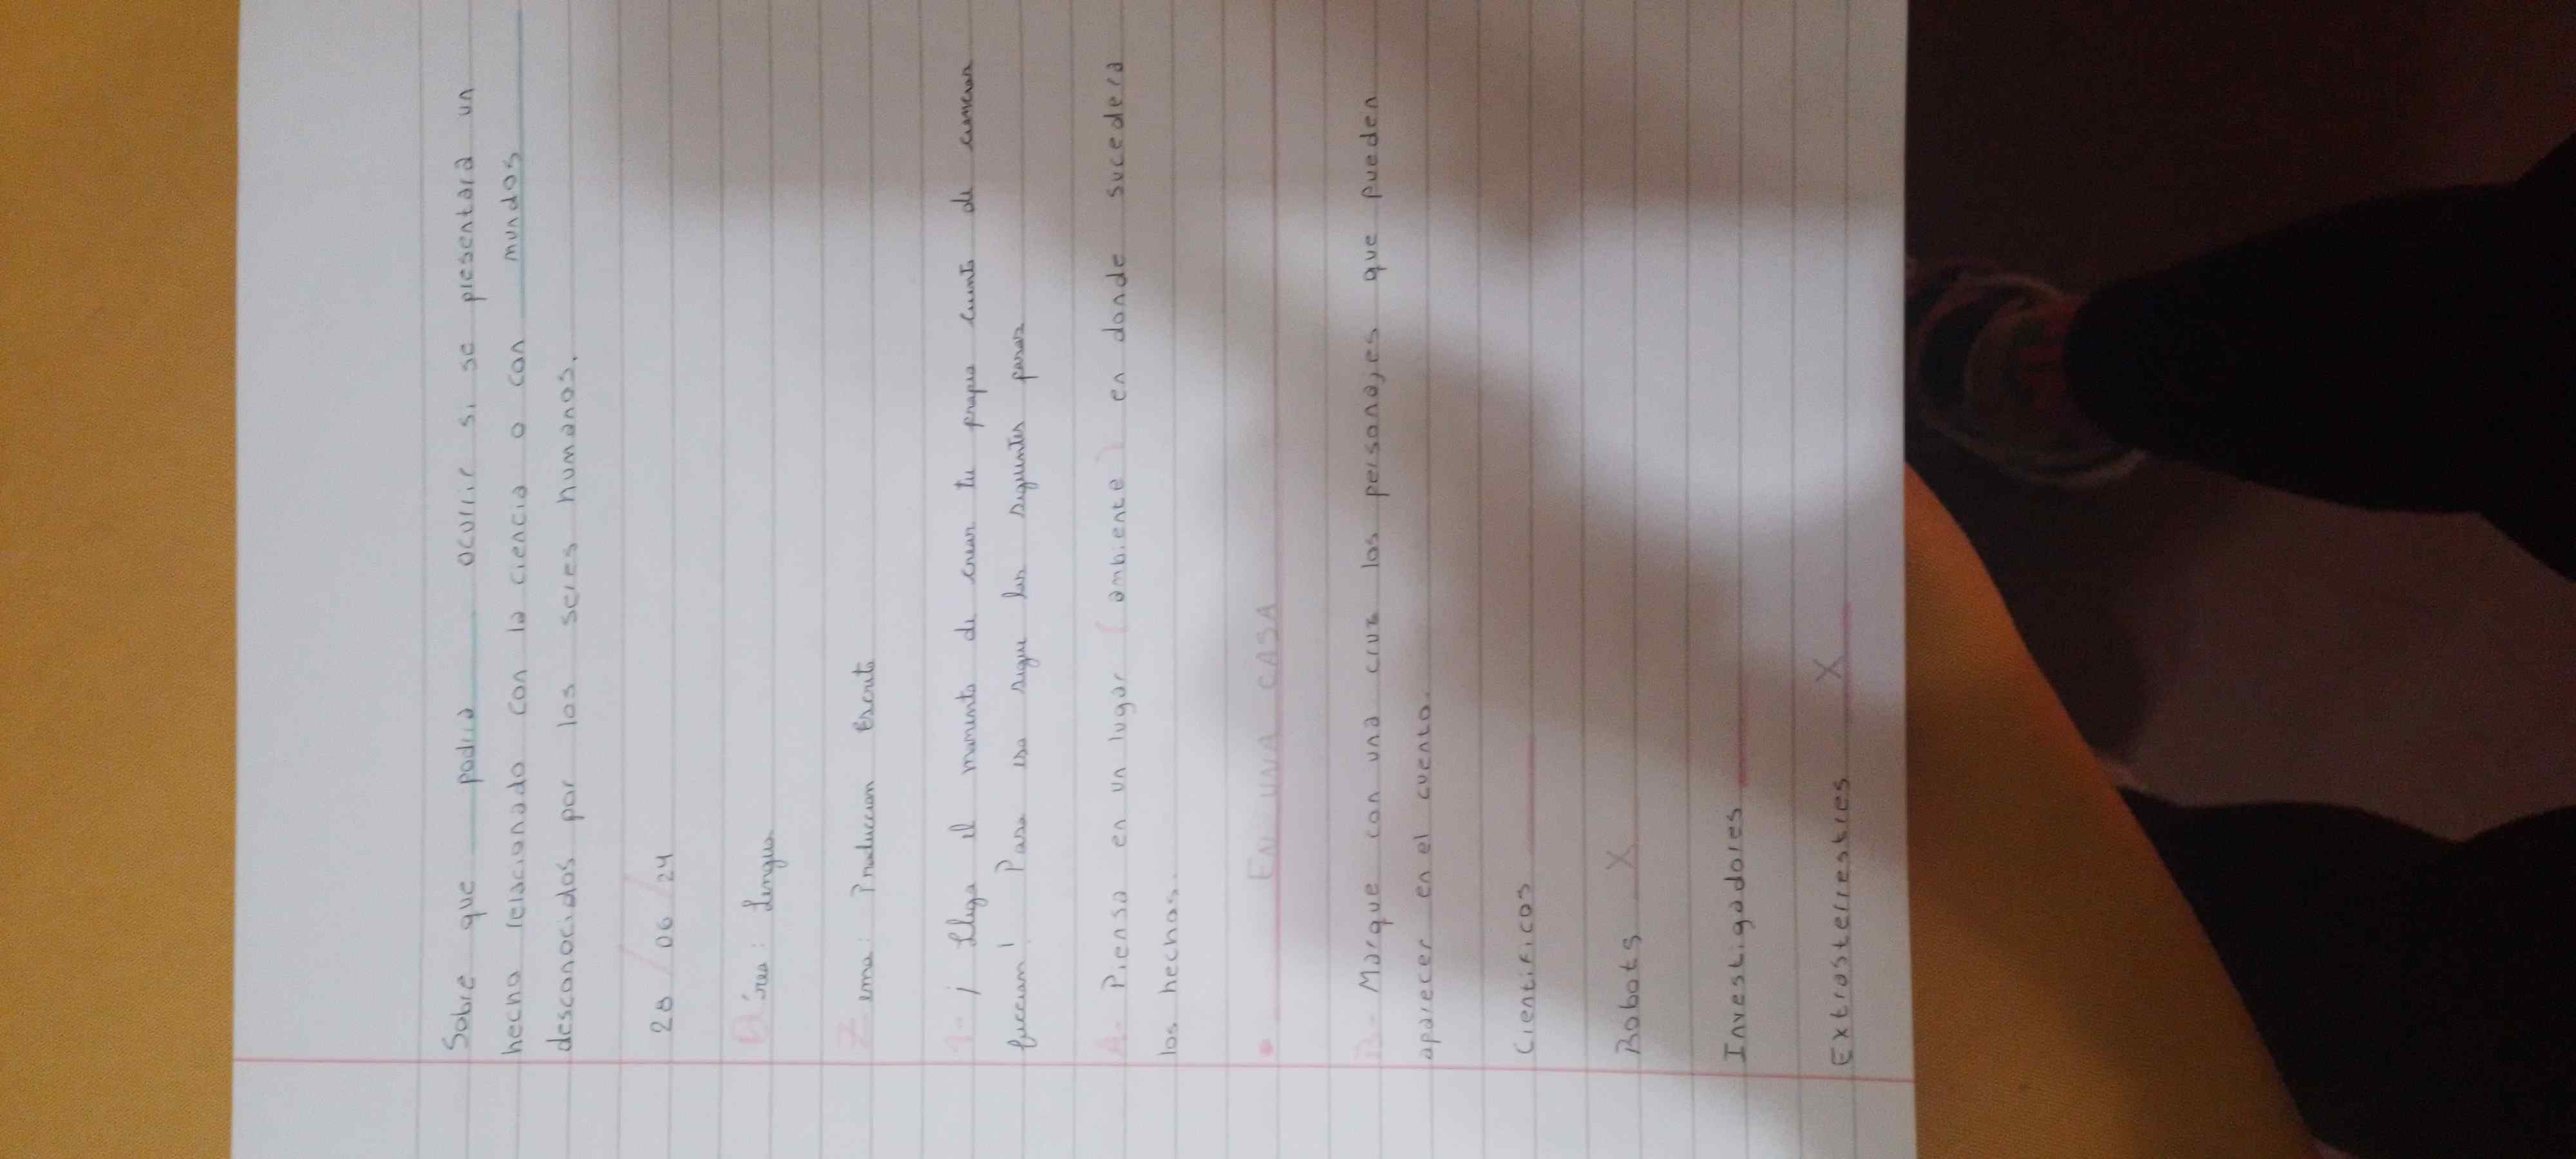 Sobre que podria ocurrir si se presentara un
hecho relacionado con la ciencia o con mundos
desconocidos por los seres humanos.
28 / 06 / 24
Área: Lengua
Tema: Produccion Escrit
1- ¡ Llego el momento de crear tu propio cuento de ciencia
ficcion! Para eso sigue los siguientes pasos
A- Piensa en un lugar (ambiente) en donde sucedera
los hechos.
• EN UNA CASA
B- Marque con una cruz los personajes que pueden
aparecer en el cuento.
Cientificos
Robots X
Investigadores
Extrasterrestres X